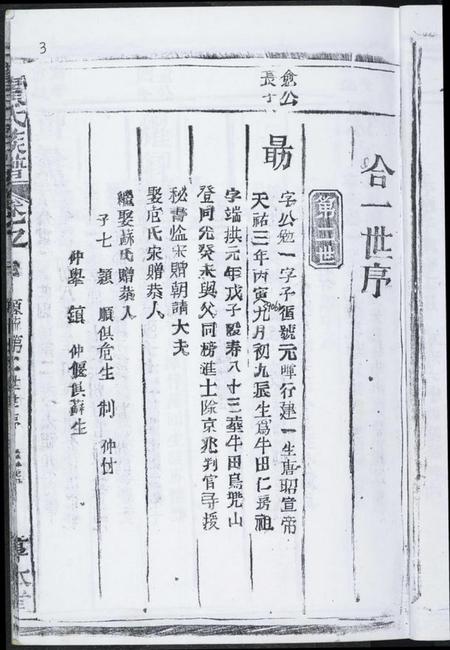 合一世序
第二世
愈公
長子
勗
字公勉一字予復號元暉行建一生唐昭宣帝
天祐三年丙寅九月初九辰生爲牛田仁房祖
906
字端拱元年戊子歿寿八十三葬牛田鳥兜山
登同光癸未與父同榜進士除京兆判官尋援
秘書監宋贈朝請大夫
娶危氏宋贈恭人
繼娶蘇氏贈恭人
子七 穎 順俱危生 制 仲付
仲舉 鎮 仲偃俱蘇生
氏族譜卷之
3